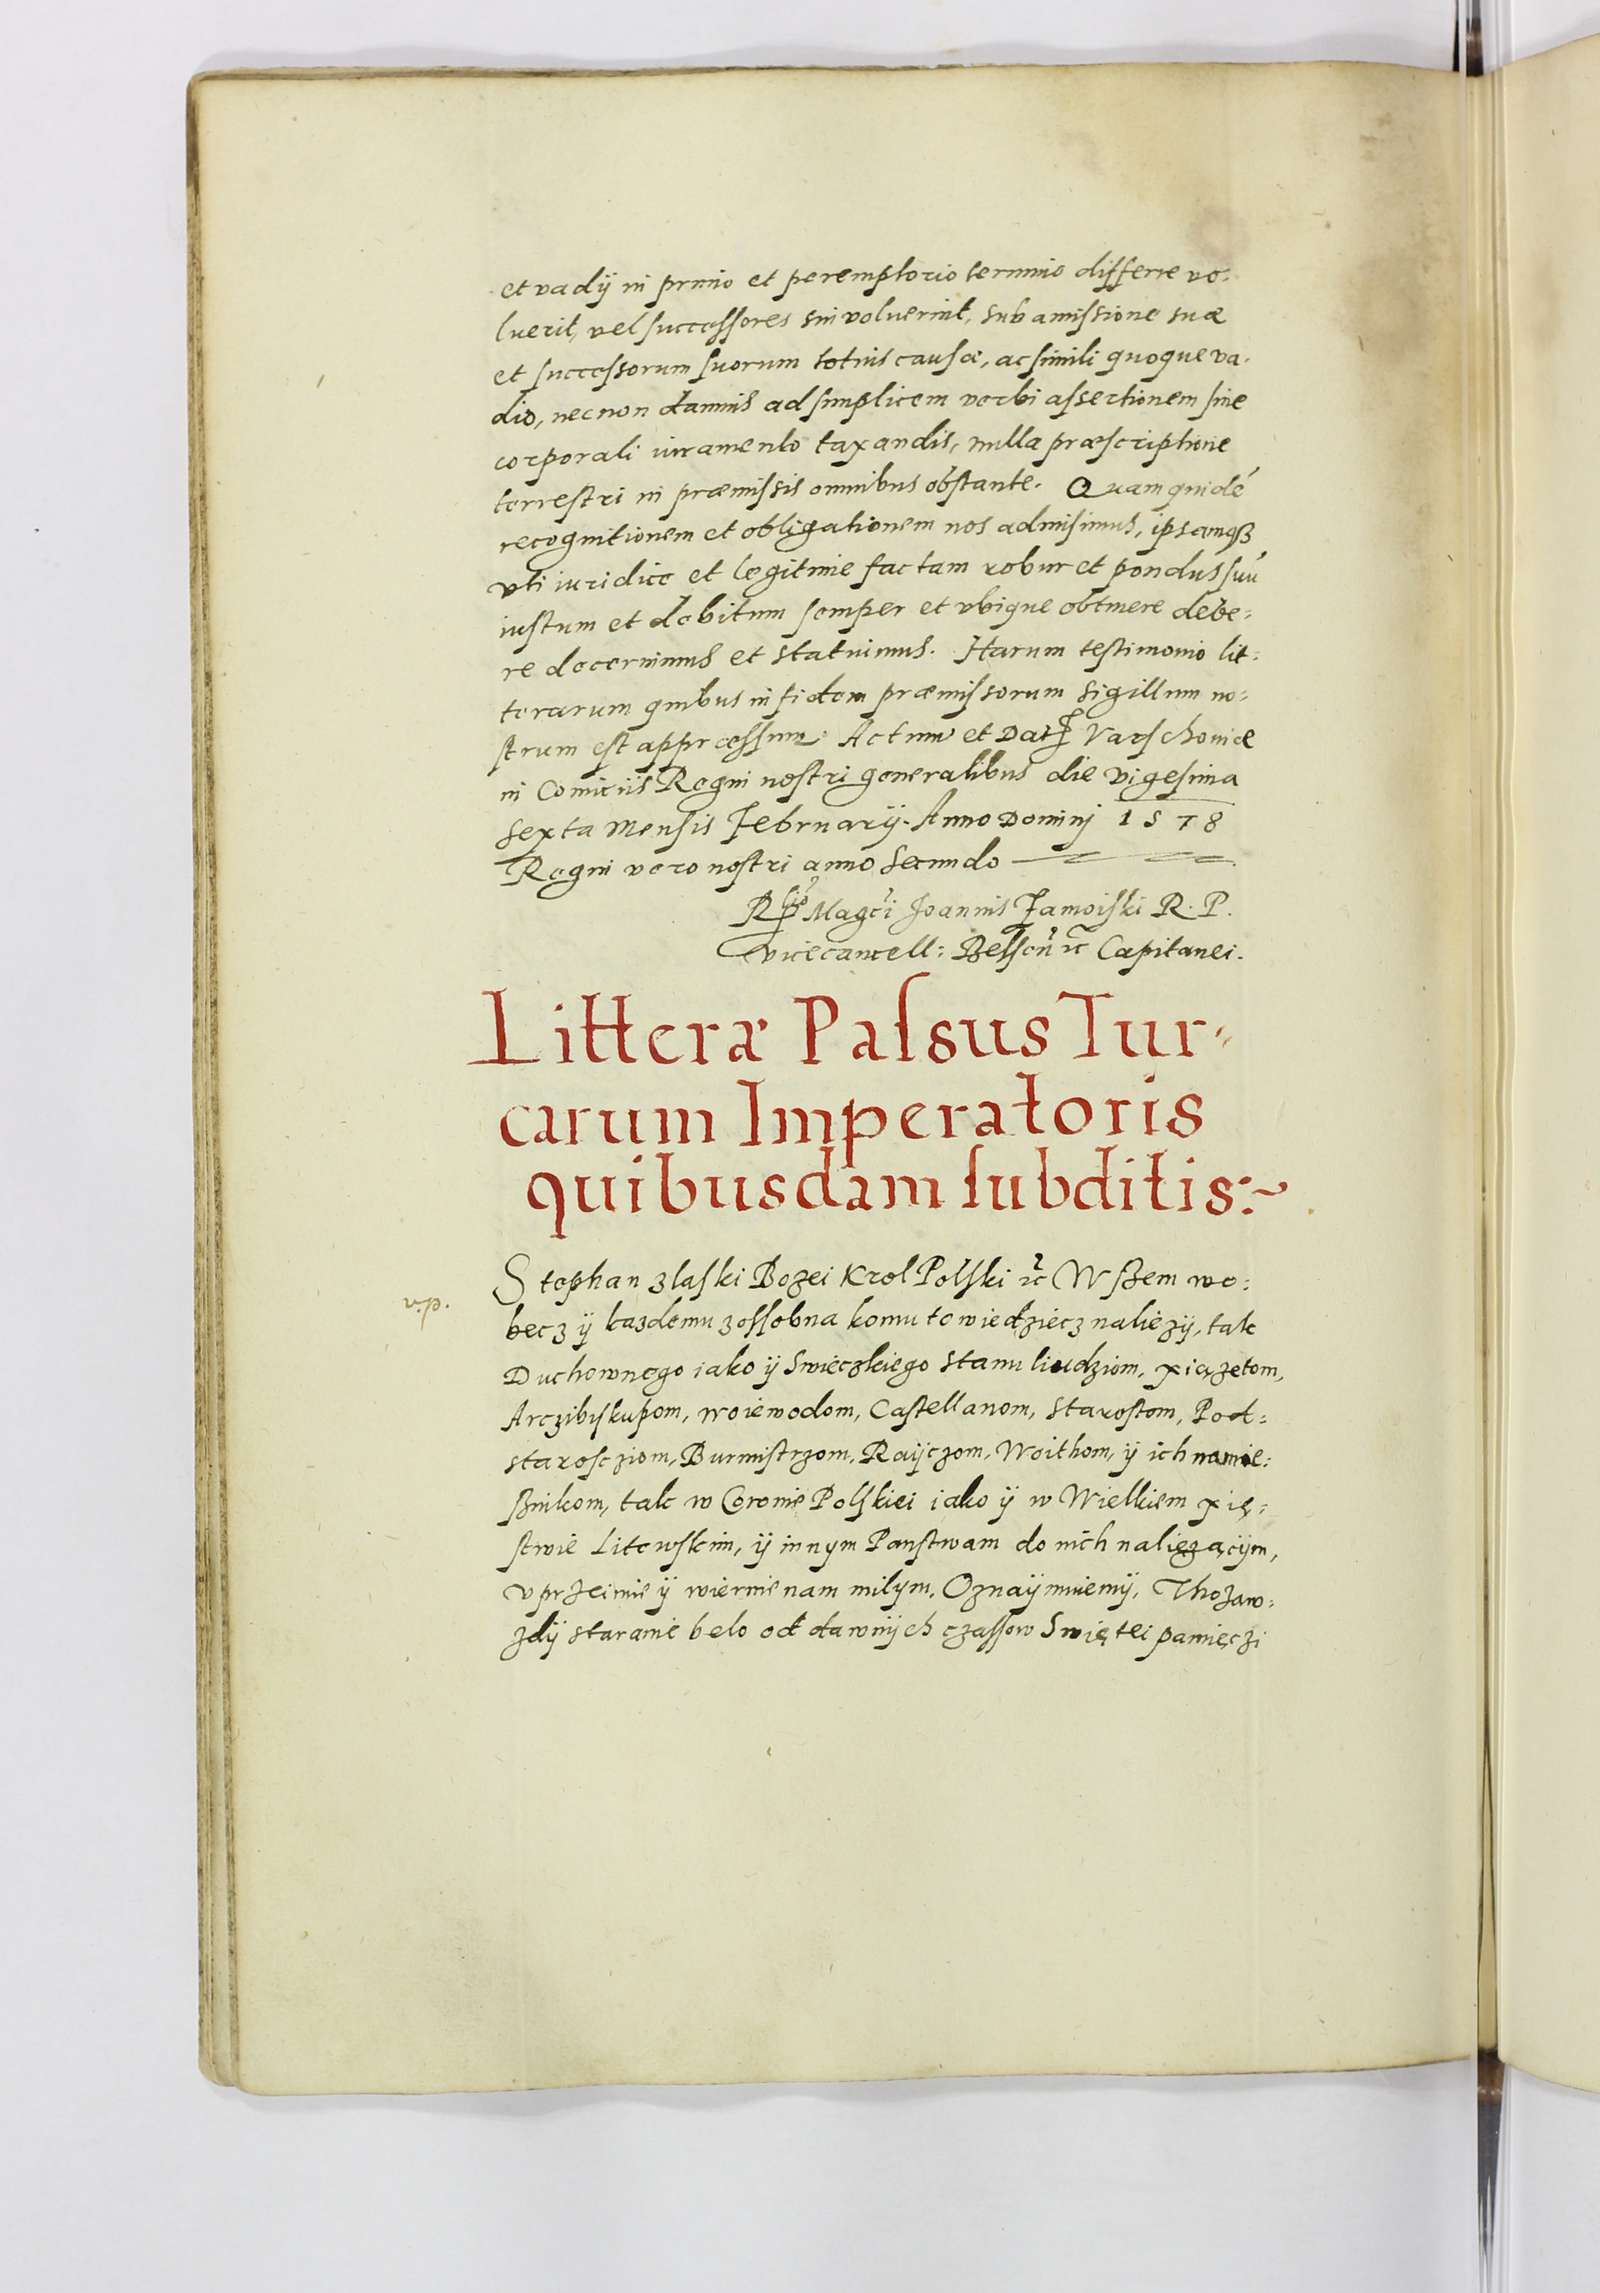 et vadÿ in primo et peremptorio termino differre vo:
luerit, vel successores sui voluerint, sub amissione suæ
et successorum suorum totius causæ, ac simili quoque va-
dio, necnon damnis ad simplicem verbi assertionem sine
corporali iuramento taxandis, nulla præscriptione
terrestri in præmissis omnibus obstante. Quam quidē
recognitionem et obligationem nos admisimus, ipsamqꝫ
vti iuridice et legitime factam robur et pondus suū
iustum et debitum semper et vbique obtinere debe:
re decernimus et statuimus. Harum testimonio lit:
terarum quibus in fidem præmissorum sigillum no:
strum est appressum. Actum et Datꝭ Varschoviæ
in Comitiis Regni nostri generalibus die vigesima
sexta Mensis Februarÿ. Anno Dominj 1578
Regni vero nostri anno secundo
Magci Joannis Zamoiski R. P.
vicecancell: Belscn̄ ꝛc Capitanei.
Litteræ Passus Tur-
carum Imperatoris
quibusdam subditis:~
v.p.
Stephan zlaski Bozei Krol Polski ꝛc Wszem wo:
becz ÿ kazdemu zossobna komu to wiedziecz naliezÿ, tak
Duchownego iako ÿ Swieczkiego stanu liudziom, xiązetom,
Arczibiskupom, woiewodom, Castellanom, starostom, Pod:
starosciom, Burmistrzom, Raÿczom, Woithom, ÿ ich namie:
sznikom, tak w Coronie Polskiei iako ÿ w Wielkiem xię:
stwie Litewskim, ÿ innym Panstwam do nich naliezącÿm,
vprzeimie ÿ wiernie nam milym, Oznaÿmuiemÿ, Tho zaw:
zdÿ staranie belo od dawnÿch czassow Swiętei pamięczi